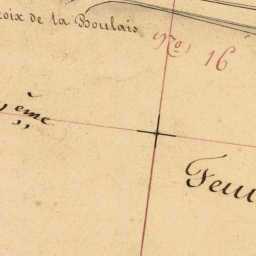 oix de la Boulais
No. 16
ème
Feui